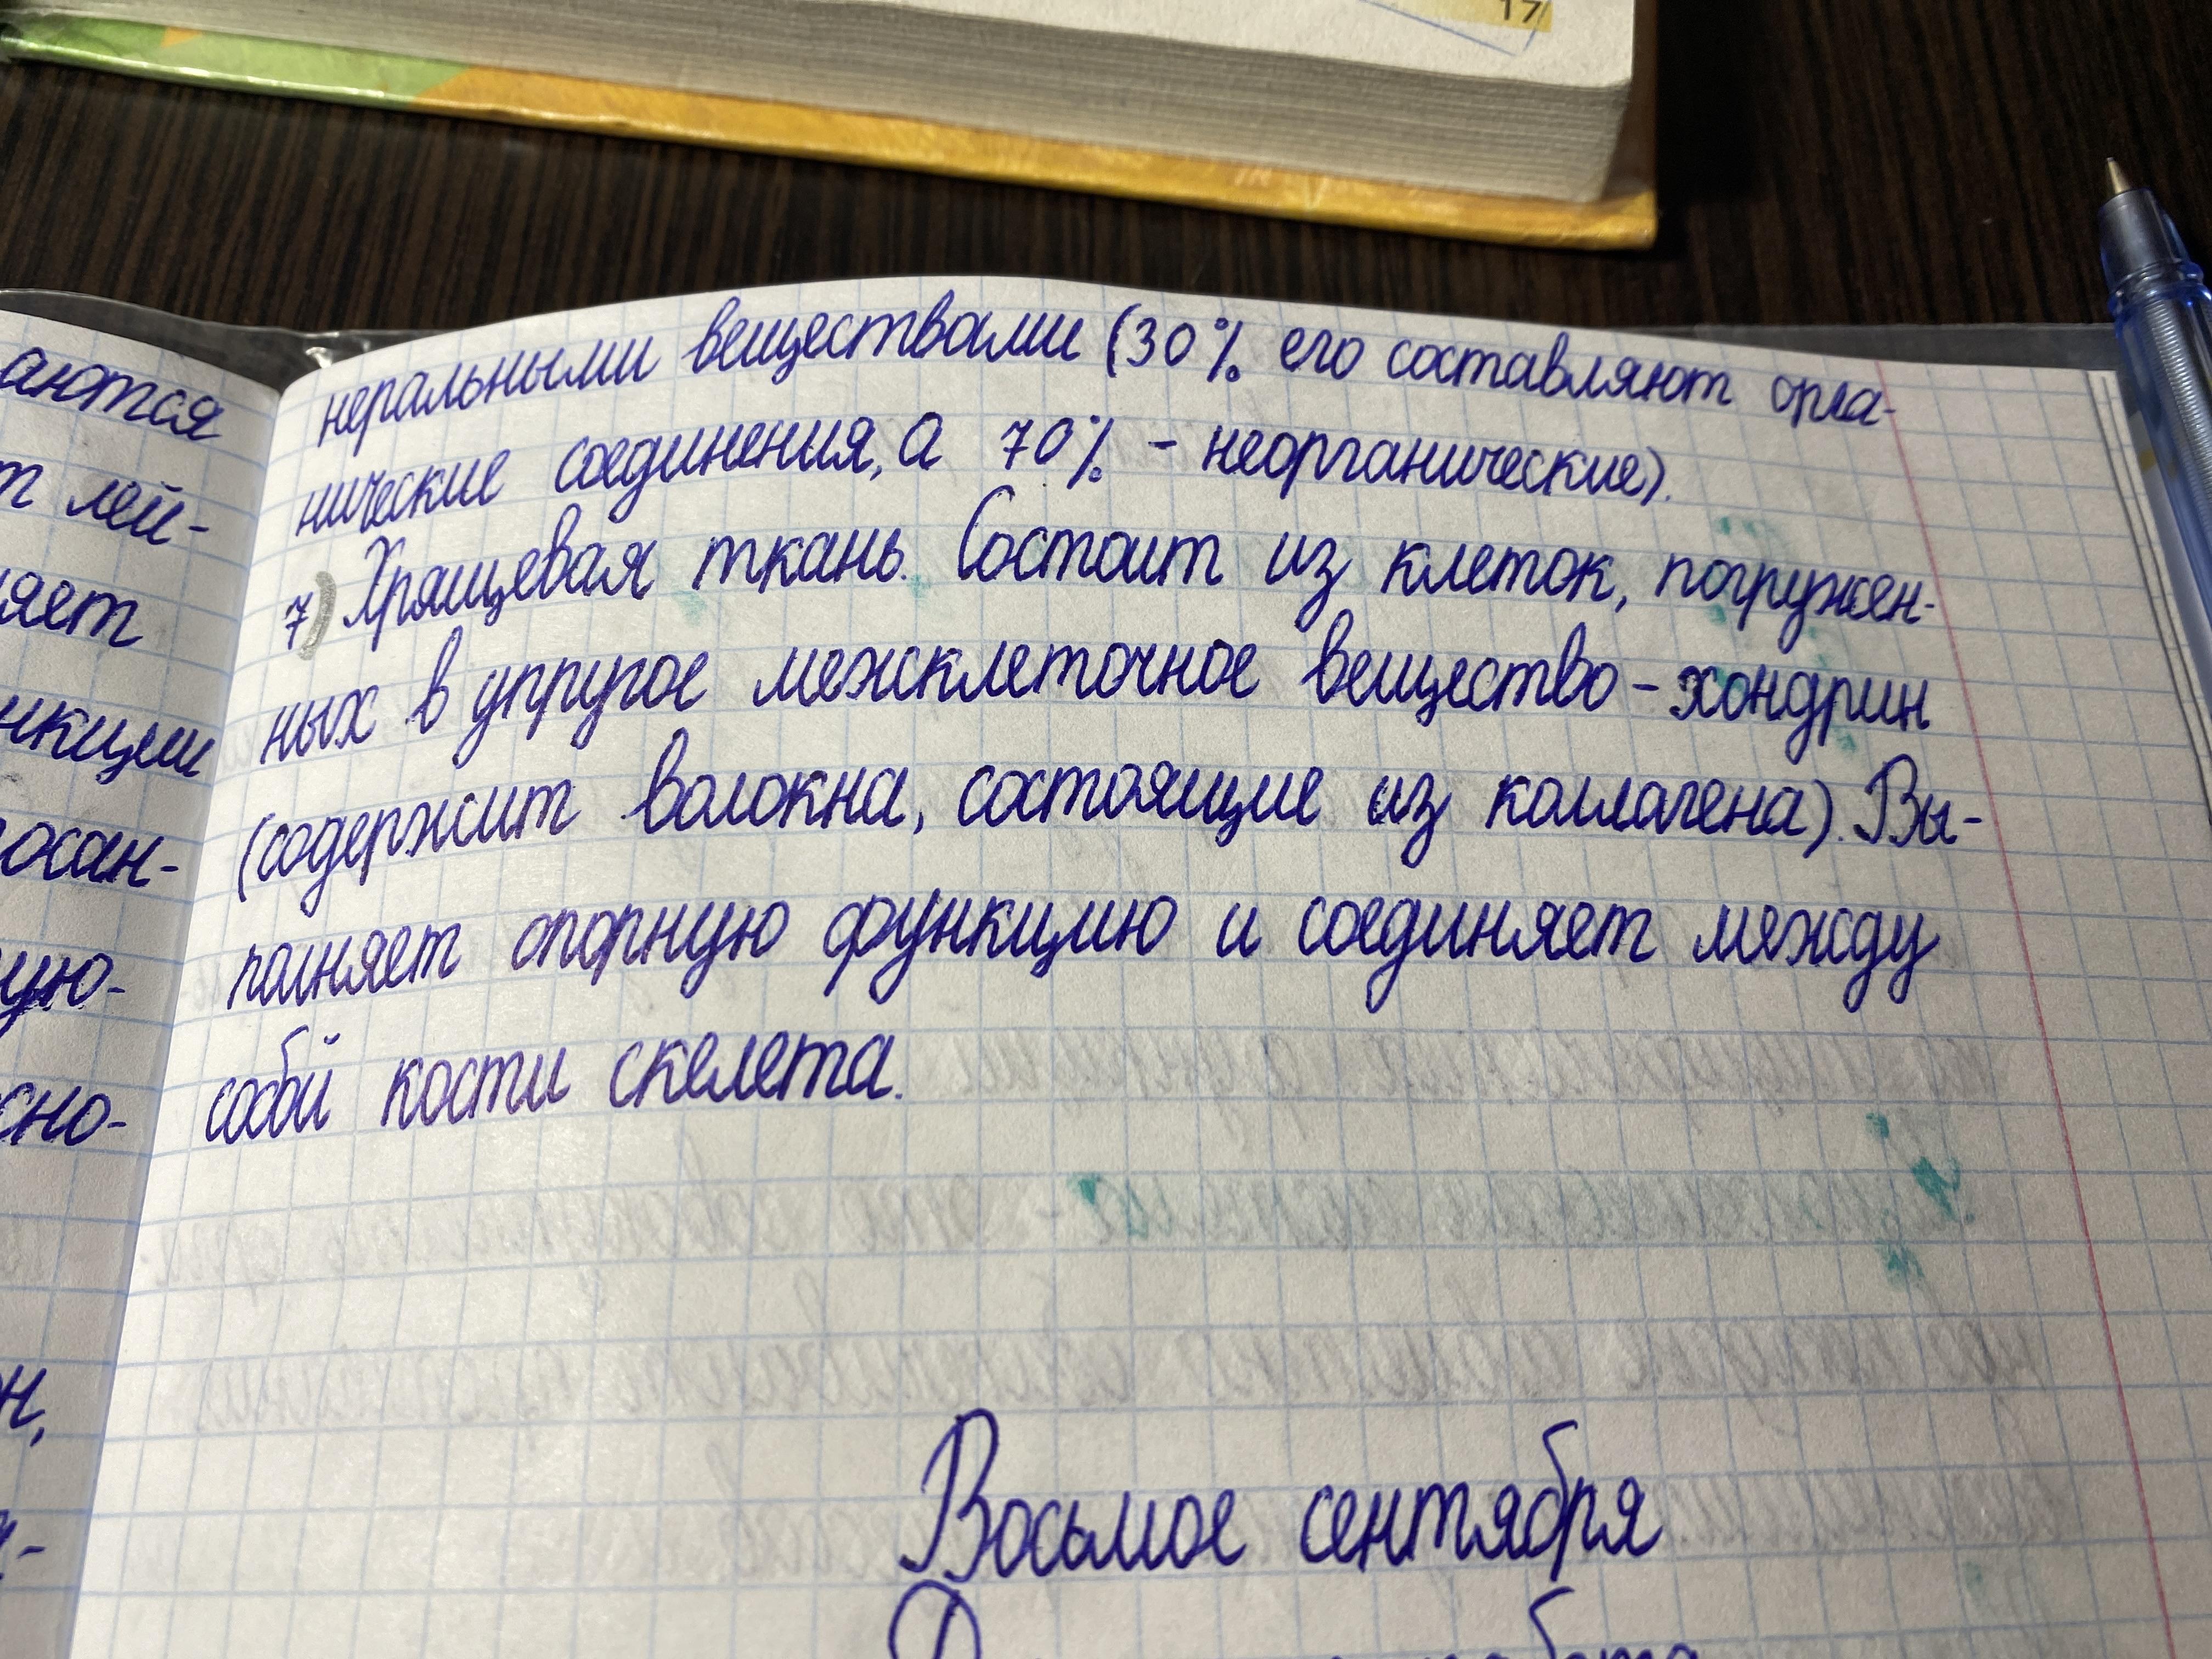 17
неральными веществами (30% его составляют орга-
нические соединения, а 70% - неорганические).
7) Хрящевая ткань. Состоит из клеток, погружен-
ных в упругое межклеточное вещество - хондрин
(содержит волокна, состоящие из коллагена). Вы-
полняет опорную функцию и соединяет между
собой кости скелета.
Восьмое сентября
аются
т лей-
няет
нкции
осан-
ую-
сно-
н,